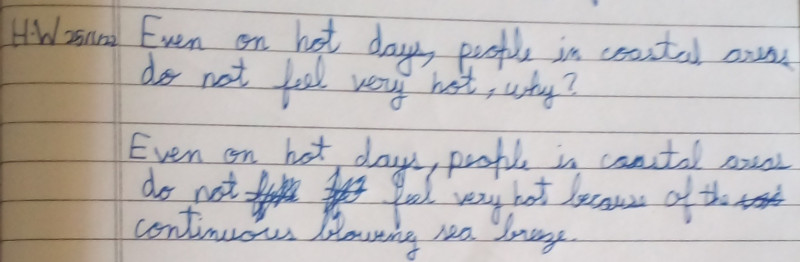 H.W 25/1/22 Even on hot days, people in coastal areas
do not feel very hot, why?
Even on hot days, people in coastal areas
do not feel very hot because of the
continuous blowing sea breeze.